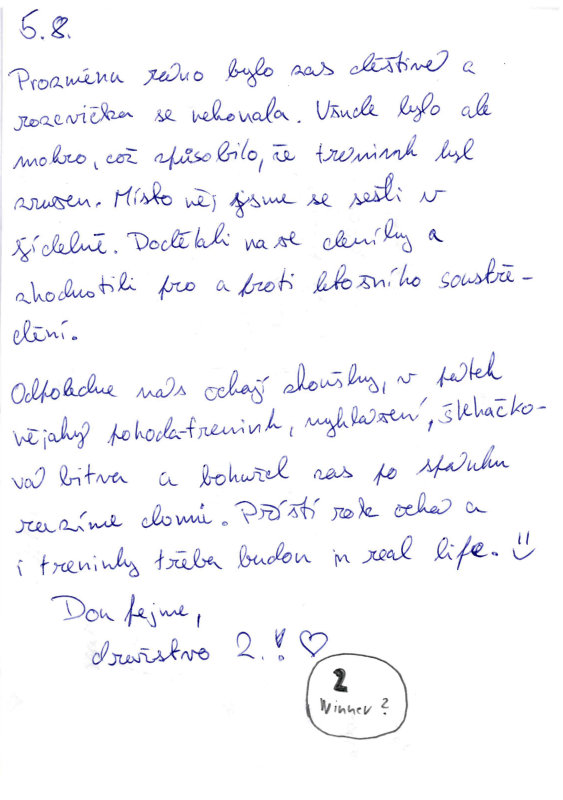 5.8.
Prozměnu ráno bylo zas deštivé a
rozcvička se nekonala. Všude bylo ale
mokro, což způsobilo, že trenink byl
zrušen. Místo něj jsme se sešli v
jídelně. Dodělali na se deníky a
zhodnotili pro a proti letošního soustře-
dění.
Odpoledne nás čekají zkoušky, v pátek
nějaký pohoda-trenink, vyhlášení, šlehačko-
vá bitva a bohužel zas po spánku
razíme domů. Příští rok ocha a
i treninky třeba budou in real life. :)
Doufejme,
družstvo 2.! ♡
2
Winner?